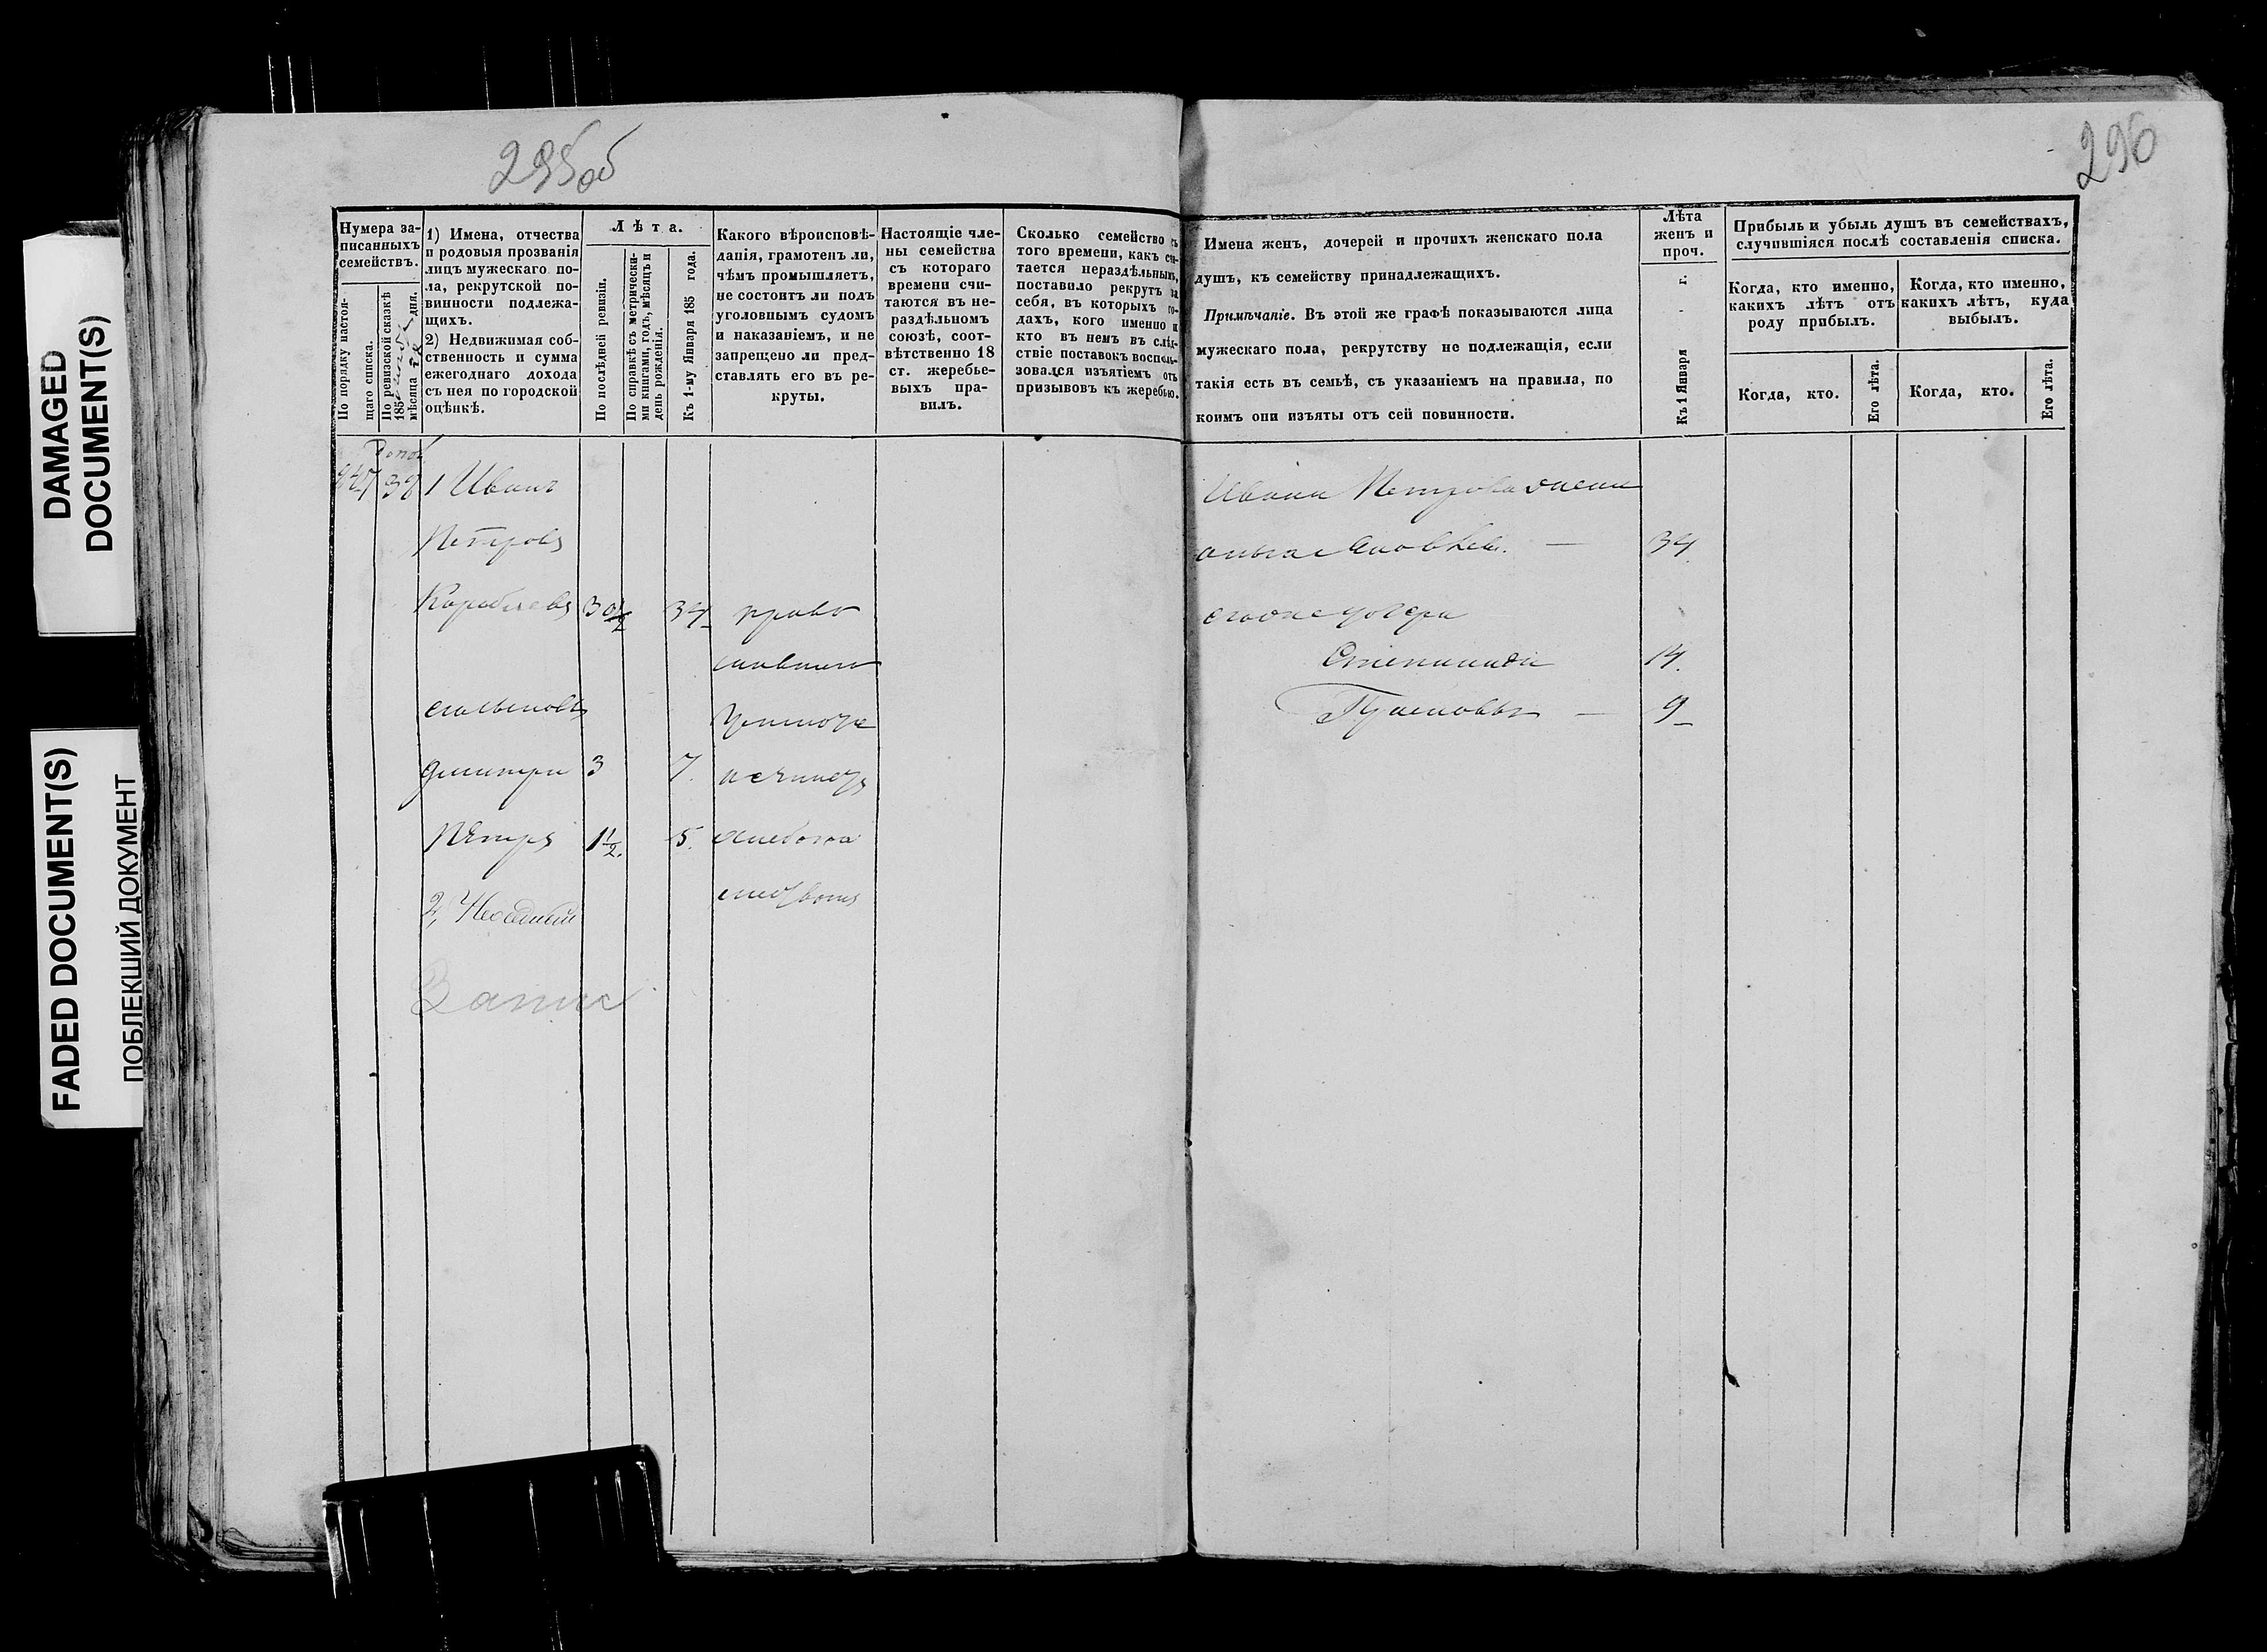 DAMAGED
DOCUMENT(S)
FADED DOCUMENT(S)
ПОБЛЕКШИЙ ДОКУМЕНТ
295об
296
Нумера за-
писанныхъ
семействъ.
По порядку настоя-
щаго списка.
По ревизской сказкѣ
185
мѣсяца дня.
1) Имена, отчества
и родовыя прозванія
лицъ мужескаго по-
ла, рекрутской по-
винности подлежа-
щихъ.
2) Недвижимая соб-
ственность и сумма
ежегоднаго дохода
съ нея по городской
оцѣнкѣ.
Лѣта.
По послѣдней ревизіи.
По справкѣ съ метрически-
ми книгами, годъ, мѣсяцъ и
день рожденія.
Къ 1-му Января 185 года.
Какого вѣроисповѣ-
данія, грамотенъ ли,
чѣмъ промышляетъ,
не состоитъ ли подъ
уголовнымъ судомъ
и наказаніемъ, и не
запрещено ли пред-
ставлять его въ ре-
круты.
Настоящіе чле-
ны семейства
съ котораго
времени счи-
таются въ не-
раздѣльномъ
союзѣ, соот-
вѣтственно 18
ст. жеребье-
выхъ пра-
вилъ.
Сколько семейство съ
того времени, какъ счи-
тается нераздѣльнымъ,
поставило рекрутъ за
себя, въ которыхъ го-
дахъ, кого именно и
кто въ немъ въ слѣд-
ствіе поставокъ восполь-
зовался изъятіемъ отъ
призывовъ къ жеребью.
Имена женъ, дочерей и прочихъ женскаго пола
душъ, къ семейству принадлежащихъ.
Примѣчаніе. Въ этой же графѣ показываются лица
мужескаго пола, рекрутству не подлежащія, если
такія есть въ семьѣ, съ указаніемъ на правила, по
коимъ они изъяты отъ сей повинности.
Лѣта
женъ и
проч.
Къ 1 Января г.
Прибыль и убыль душъ въ семействахъ,
случившіяся послѣ составленія списка.
Когда, кто именно,
какихъ лѣтъ отъ
роду прибылъ.
Когда, кто именно,
какихъ лѣтъ, куда
выбылъ.
Когда, кто.
Его лѣта.
Когда, кто.
Его лѣта.
1 Иванъ
Петровъ
Кораблевъ 30½ 34 право
славнаго
Дмитри 3 7.
Петръ 1½. 5.
2,
Ивана Петрова жена
34
его же дочери
Степанида 14.
9